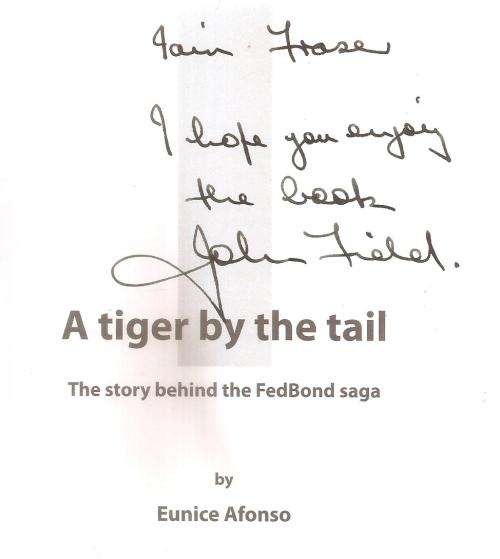 Iain Fraser
I hope you enjoy
the book
John Field.
A tiger by the tail
The story behind the FedBond saga
by
Eunice Afonso